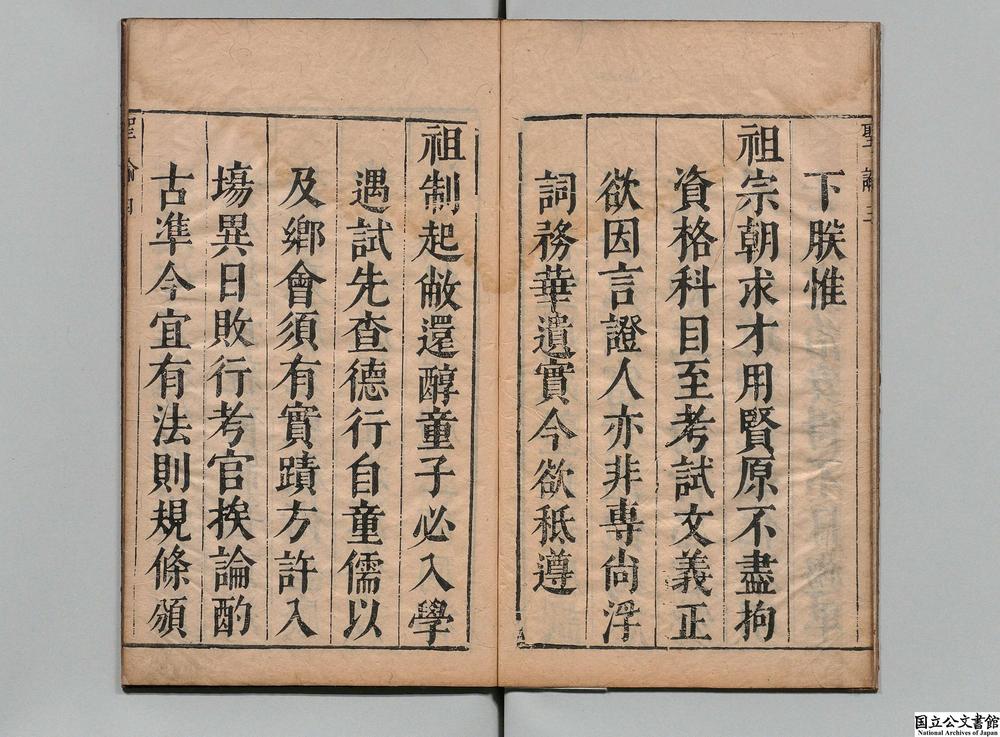 聖諭 三
下朕惟
祖宗朝求才用賢原不盡拘
資格科目至考試文義正
欲因言證人亦非專尙浮
詞務華遺實今欲秪遵
祖制起敝還醇童子必入學
遇試先查德行自童儒以
及鄉會須有實蹟方許入
塲異日敗行考官挨論酌
古準今宜有法則規條頒
聖諭 四
国立公文書館
National Archives of Japan